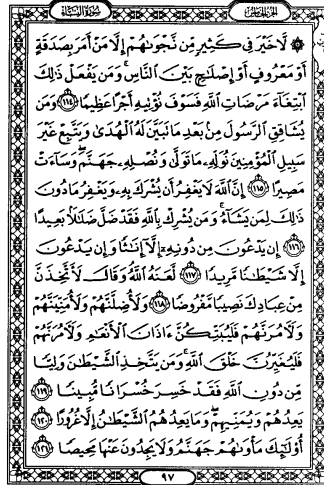 الجزء الخامس
سورة النساء
۞ لَّا خَيْرَ فِى كَثِيرٍ مِّن نَّجْوَىٰهُمْ إِلَّا مَنْ أَمَرَ بِصَدَقَةٍ
أَوْ مَعْرُوفٍ أَوْ إِصْلَٰحٍۭ بَيْنَ ٱلنَّاسِ ۚ وَمَن يَفْعَلْ ذَٰلِكَ
ٱبْتِغَآءَ مَرْضَاتِ ٱللَّهِ فَسَوْفَ نُؤْتِيهِ أَجْرًا عَظِيمًا ١١٤ وَمَن
يُشَاقِقِ ٱلرَّسُولَ مِنۢ بَعْدِ مَا تَبَيَّنَ لَهُ ٱلْهُدَىٰ وَيَتَّبِعْ غَيْرَ
سَبِيلِ ٱلْمُؤْمِنِينَ نُوَلِّهِۦ مَا تَوَلَّىٰ وَنُصْلِهِۦ جَهَنَّمَ ۖ وَسَآءَتْ
مَصِيرًا ١١٥ إِنَّ ٱللَّهَ لَا يَغْفِرُ أَن يُشْرَكَ بِهِۦ وَيَغْفِرُ مَا دُونَ
ذَٰلِكَ لِمَن يَشَآءُ ۚ وَمَن يُشْرِكْ بِٱللَّهِ فَقَدْ ضَلَّ ضَلَٰلًۢا بَعِيدًا
١١٦ إِن يَدْعُونَ مِن دُونِهِۦٓ إِلَّآ إِنَٰثًا وَإِن يَدْعُونَ
إِلَّا شَيْطَٰنًا مَّرِيدًا ١١٧ لَّعَنَهُ ٱللَّهُ ۘ وَقَالَ لَأَتَّخِذَنَّ
مِنْ عِبَادِكَ نَصِيبًا مَّفْرُوضًا ١١٨ وَلَأُضِلَّنَّهُمْ وَلَأُمَنِّيَنَّهُمْ
وَلَءَامُرَنَّهُمْ فَلَيُبَتِّكُنَّ ءَاذَانَ ٱلْأَنْعَٰمِ وَلَءَامُرَنَّهُمْ
فَلَيُغَيِّرُنَّ خَلْقَ ٱللَّهِ ۚ وَمَن يَتَّخِذِ ٱلشَّيْطَٰنَ وَلِيًّا
مِّن دُونِ ٱللَّهِ فَقَدْ خَسِرَ خُسْرَانًا مُّبِينًا ١١٩
يَعِدُهُمْ وَيُمَنِّيهِمْ ۖ وَمَا يَعِدُهُمُ ٱلشَّيْطَٰنُ إِلَّا غُرُورًا ١٢٠
أُو۟لَٰٓئِكَ مَأْوَىٰهُمْ جَهَنَّمُ وَلَا يَجِدُونَ عَنْهَا مَحِيصًا ١٢١
٩٧